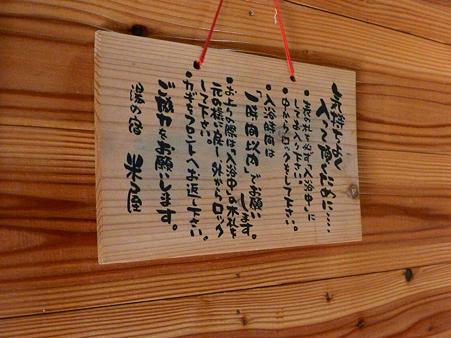 気持ちよく
入って頂くために‥‥
・表札を必ず「入浴中」に
してお入り下さい。
・中からロックをして下さい。
・入浴時間は
「一時間以内」でお願い
します。
・お上りの際は「入浴中」の木札を
元の様に戻し外からロック
して下さい。
・カギをフロントへお返し下さい。
ご協力をお願いします。
湯の宿 米屋